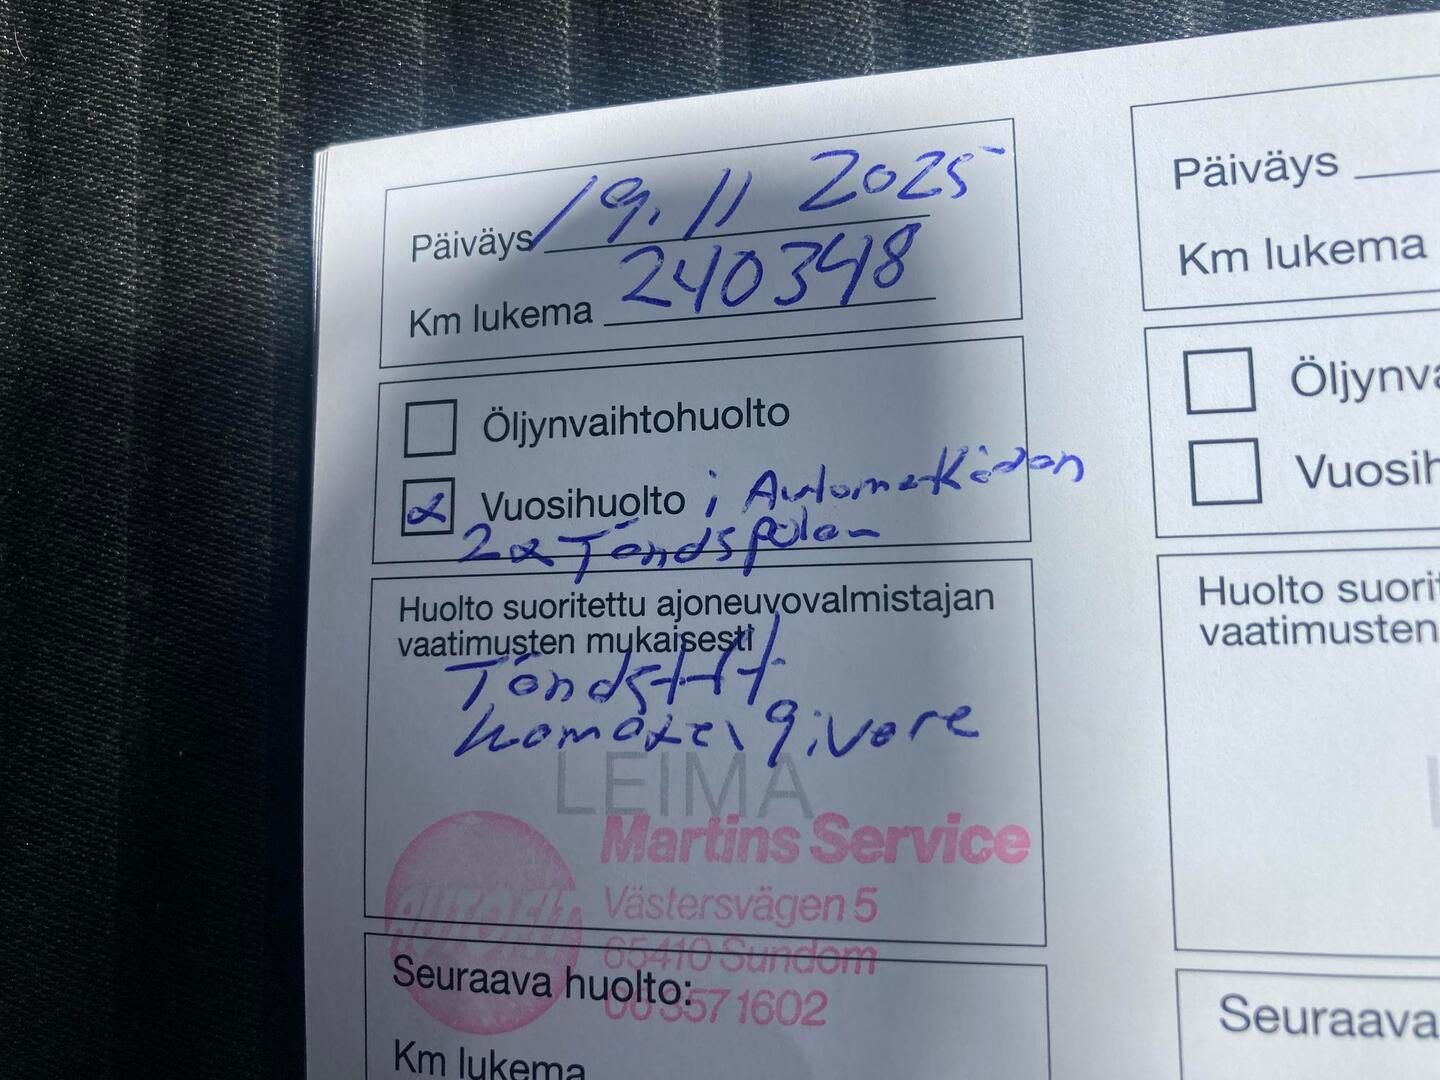 Päiväys 19.11 2025
Km lukema 240348
Öljynvaihtohuolto
Vuosihuolto i
2x Tändspolan
Huolto suoritettu ajoneuvovalmistajan
vaatimusten mukaisesti
Tändstift
givare
LEIMA
Martins Service
Västersvägen 5
65410 Sundom
06 3571602
Seuraava huolto:
Km lukema
Päiväys
Km lukema
Öljynva
Vuosih
Huolto suorit
vaatimusten
Seuraava